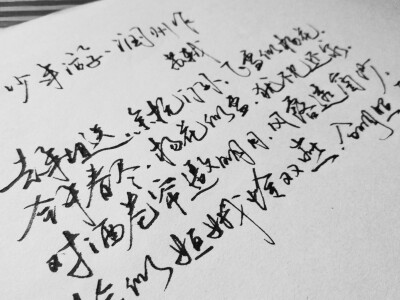 少年游·润州作
苏轼
去年相送,余杭门外,飞雪似杨花。
今年春尽,杨花似雪,犹不见还家。
对酒卷帘邀明月,风露透窗纱。
恰似姮娥怜双燕,分明照